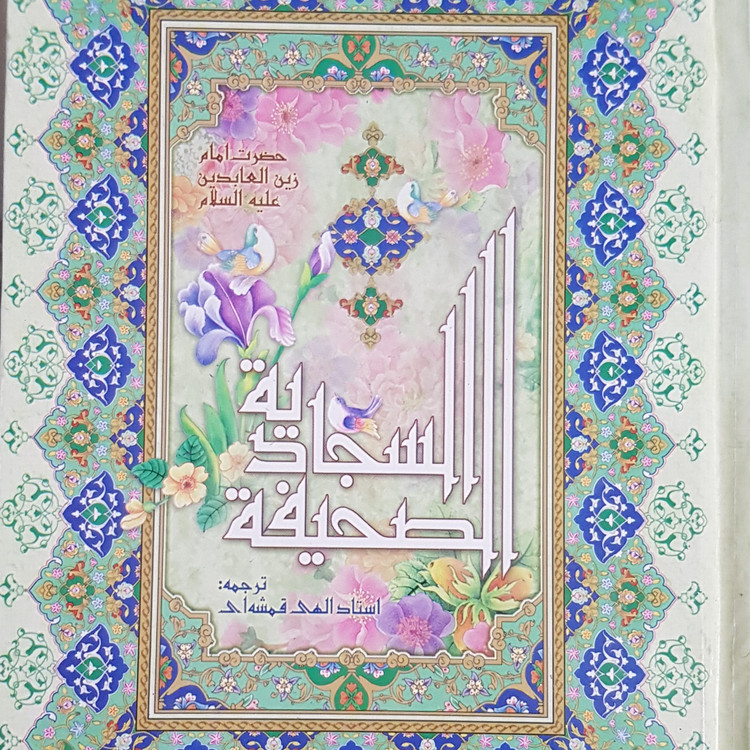 حضرت امام
زین العابدین
علیه السلام
الصحیفة
السجادیة
ترجمه:
استاد الهی قمشه‌ای